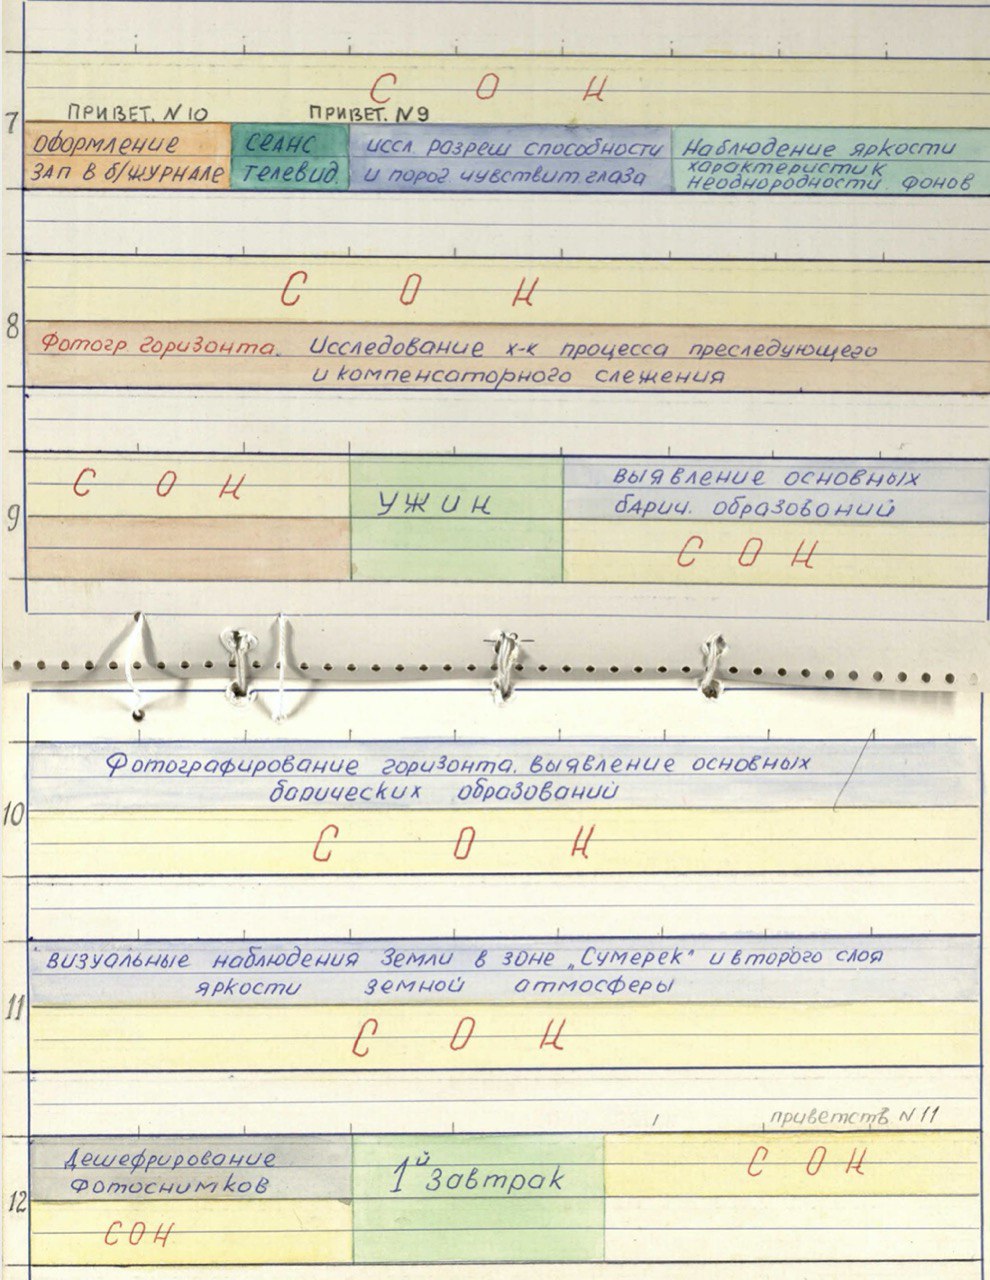 С О Н
ПРИВЕТ. N10 ПРИВЕТ. N9
7
оформление
зап в б/журнале
сеанс
телевид.
иссл. разреш способности
и порог. чувствит глаза
Наблюдение яркости
характеристик
неоднородности. фонов
С О Н
8
Фотогр. горизонта. Исследование х-к процесса преследующего
и компенсаторного слежения
9
С О Н
УЖИН
выявление основных
барич. образований
С О Н
10
Фотографирование горизонта. выявление основных
барических образований
С О Н
11
визуальные наблюдения Земли в зоне „Сумерек" и второго слоя
яркости земной атмосферы
С О Н
приветств N11
12
Дешефрирование
Фотоснимков
СОН
1й завтрак
С О Н